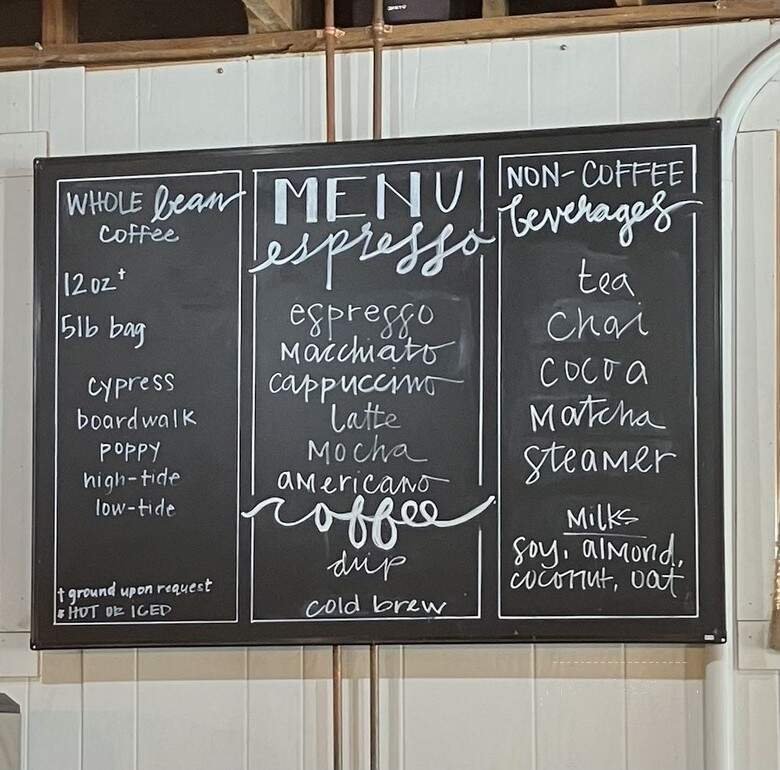 WHOLE bean
coffee
12 oz†
5lb bag
cypress
boardwalk
poppy
high-tide
low-tide
† ground upon request
* HOT OR ICED
MENU
espresso
espresso
Macchiato
cappuccino
latte
Mocha
americano
coffee
drip
cold brew
NON-COFFEE
beverages
tea
chai
cocoa
Matcha
steamer
Milks
soy, almond,
coconut, oat